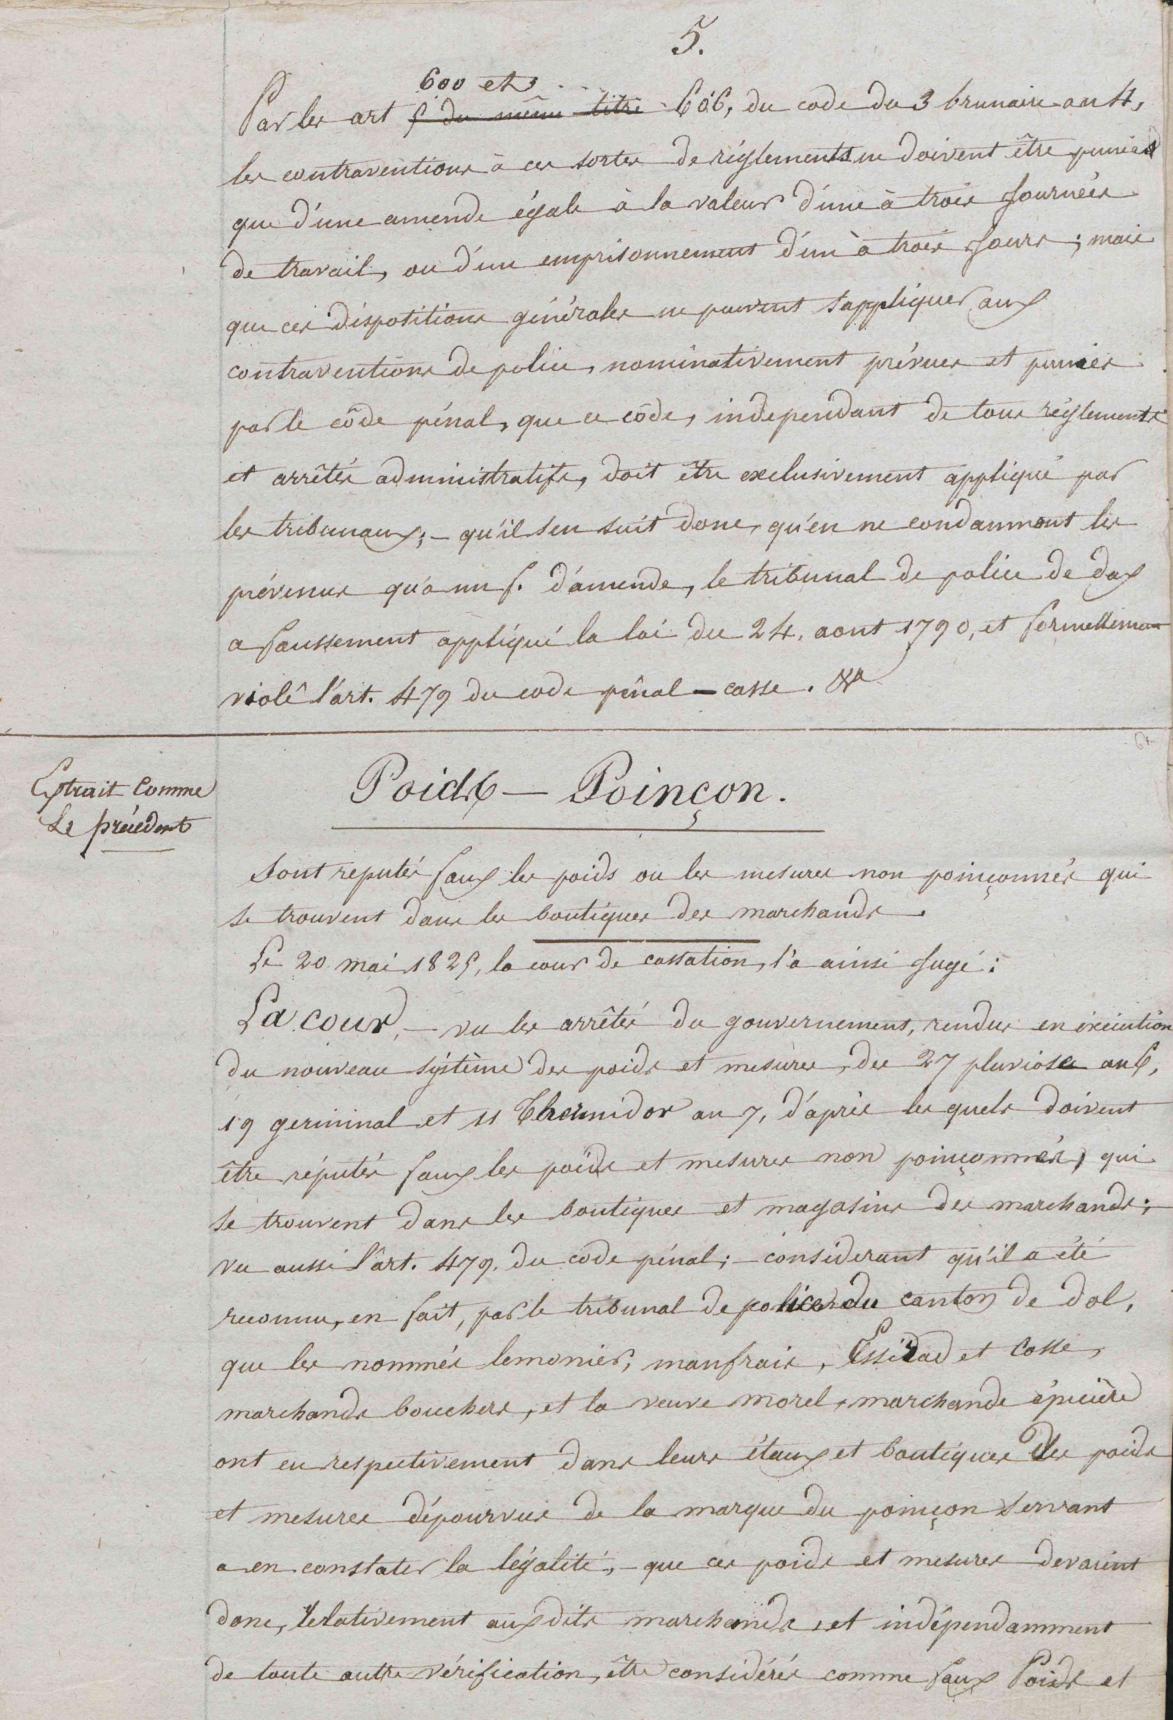 5.
600 et
Par les art 5 du même titre 606, du code du 3 brumaire an 4,
les contraventions à ces sortes de réglements ne doivent être punies
que d'une amende égale à la valeur d'une à trois journées
de travail, ou d'un emprisonnement d'un à trois jours ; mais
que ces dispositions générales ne peuvent s'appliquer aux
contraventions de police, nominativement prévues et punies
par le côde pénal, que ce côde, independant de tous réglements
et arrêtés administratifs, doit être exclusivement appliqué par
les tribunaux ; — qu'il s'en suit donc, qu'en ne condamnant les
prévenus qu'a un f. d'amende, le tribunal de police de dax
a faussement appliqué la loi du 24, aout 1790, et formellement
violé l'art. 479 du code pénal — casse. &a
Extrait Comme
Le précédent
Poids — Poinçon.
Sont reputés faux les poids ou les mesures non poinçonnés qui
se trouvent dans les boutiques des marchands.
Le 20 mai 1825, la cour de cassation, l'a ainsi jugé :
La cour, — vu les arrêtés du gouvernement, rendus en éxécution
du nouveau système des poids et mesures, des 27 pluviose an 6,
19 germinal et 11 Thermidor an 7, d'après les quels doivent
être réputés faux les poids et mesures non poinçonnés, qui
se trouvent dans les boutiques et magasins des marchands ;
vu aussi l'art. 479. du côde pénal ; — considerant qu'il a été
reconnu, en fait, par le tribunal de police du canton de dol,
que les nommés lemonier, manfrais, et Cosse,
marchands bouchers, et la veuve morel, marchande épicière
ont eu respectivement dans leurs étaux et boutiques des poids
et mesures dépourvus de la marque du poinçon servant
a en constater la légalité, — que ces poids et mesures devaient
donc, relativement aux dits marchands, et indépendamment
de toute autre vérification, être considérés comme faux Poids et